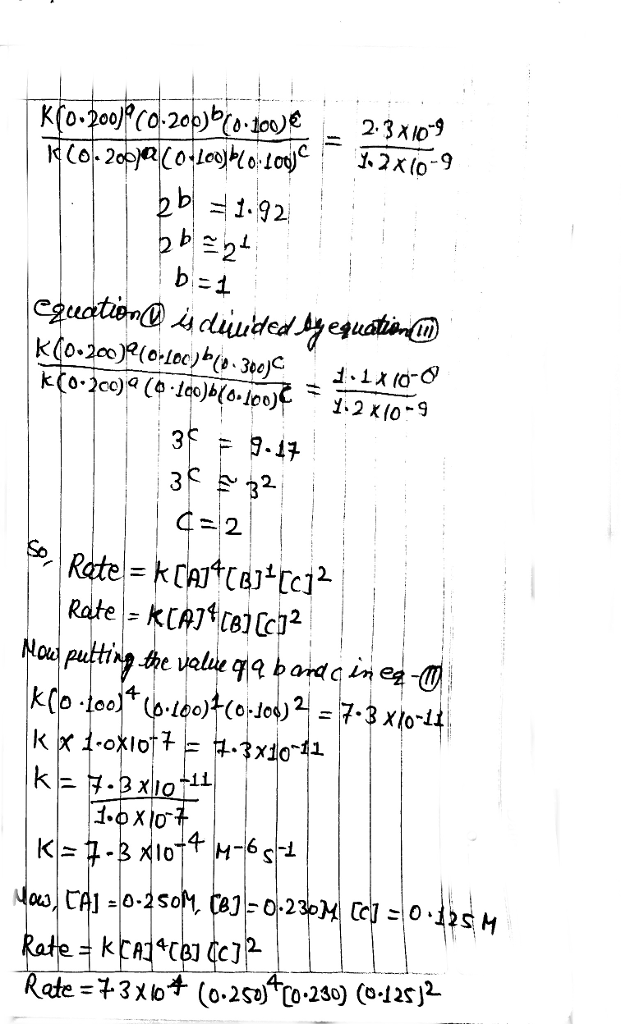 K(0.200)^a (0.200)^b (0.100)^c / K(0.200)^a (0.100)^b (0.100)^c = 2.3 x 10^-9 / 1.2 x 10^-9
2^b = 1.92
2^b ≅ 2^1
b = 1
equation (V) is divided by equation (III)
K(0.200)^a (0.100)^b (0.300)^c / K(0.200)^a (0.100)^b (0.100)^c = 1.1 x 10^-8 / 1.2 x 10^-9
3^c = 9.17
3^c ≅ 3^2
C = 2
So, Rate = K[A]^4 [B]^1 [C]^2
Rate = K[A]^4 [B] [C]^2
Now putting the value of a b and c in eq-(II)
K(0.100)^4 (0.100)^1 (0.100)^2 = 7.3 x 10^-11
K x 1.0x10^-7 = 7.3x10^-11
K = 7.3 x 10^-11 / 1.0 x 10^-7
K = 7.3 x 10^-4 M^-6 s^-1
Now, [A] = 0.250M, [B] = 0.230M [C] = 0.125 M
Rate = K[A]^4 [B] [C]^2
Rate = 7.3 x 10^-4 (0.250)^4 (0.230) (0.125)^2